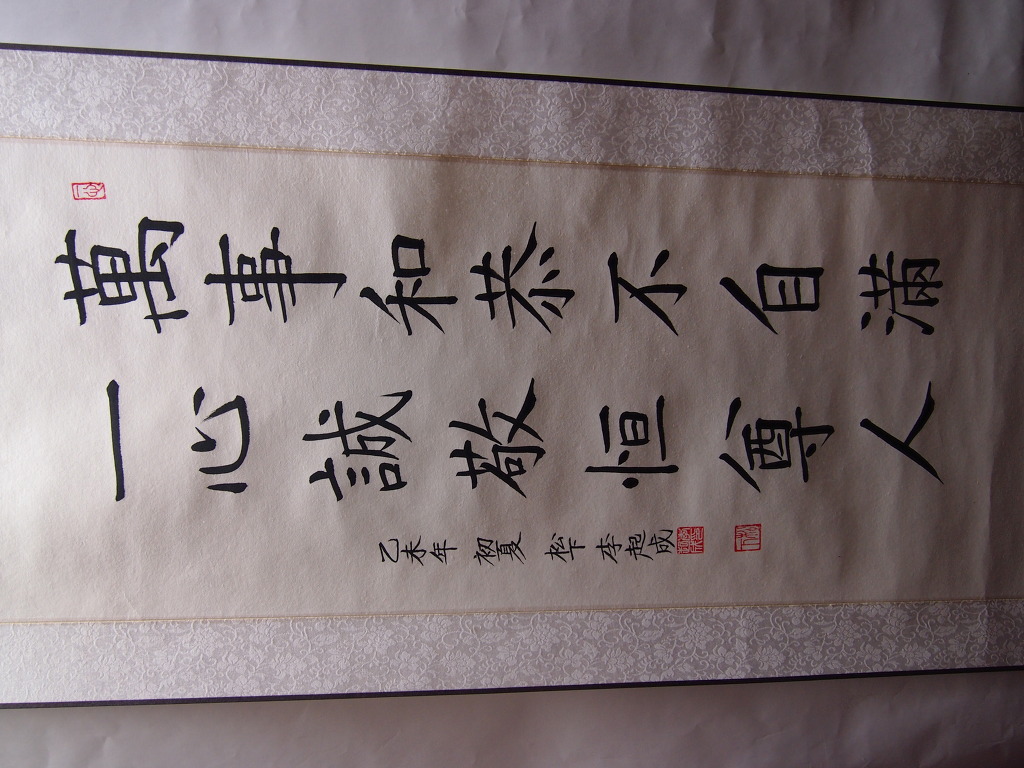 萬事和恭不自滿
一心誠敬恒尊人
乙未年 初夏 松下李起成